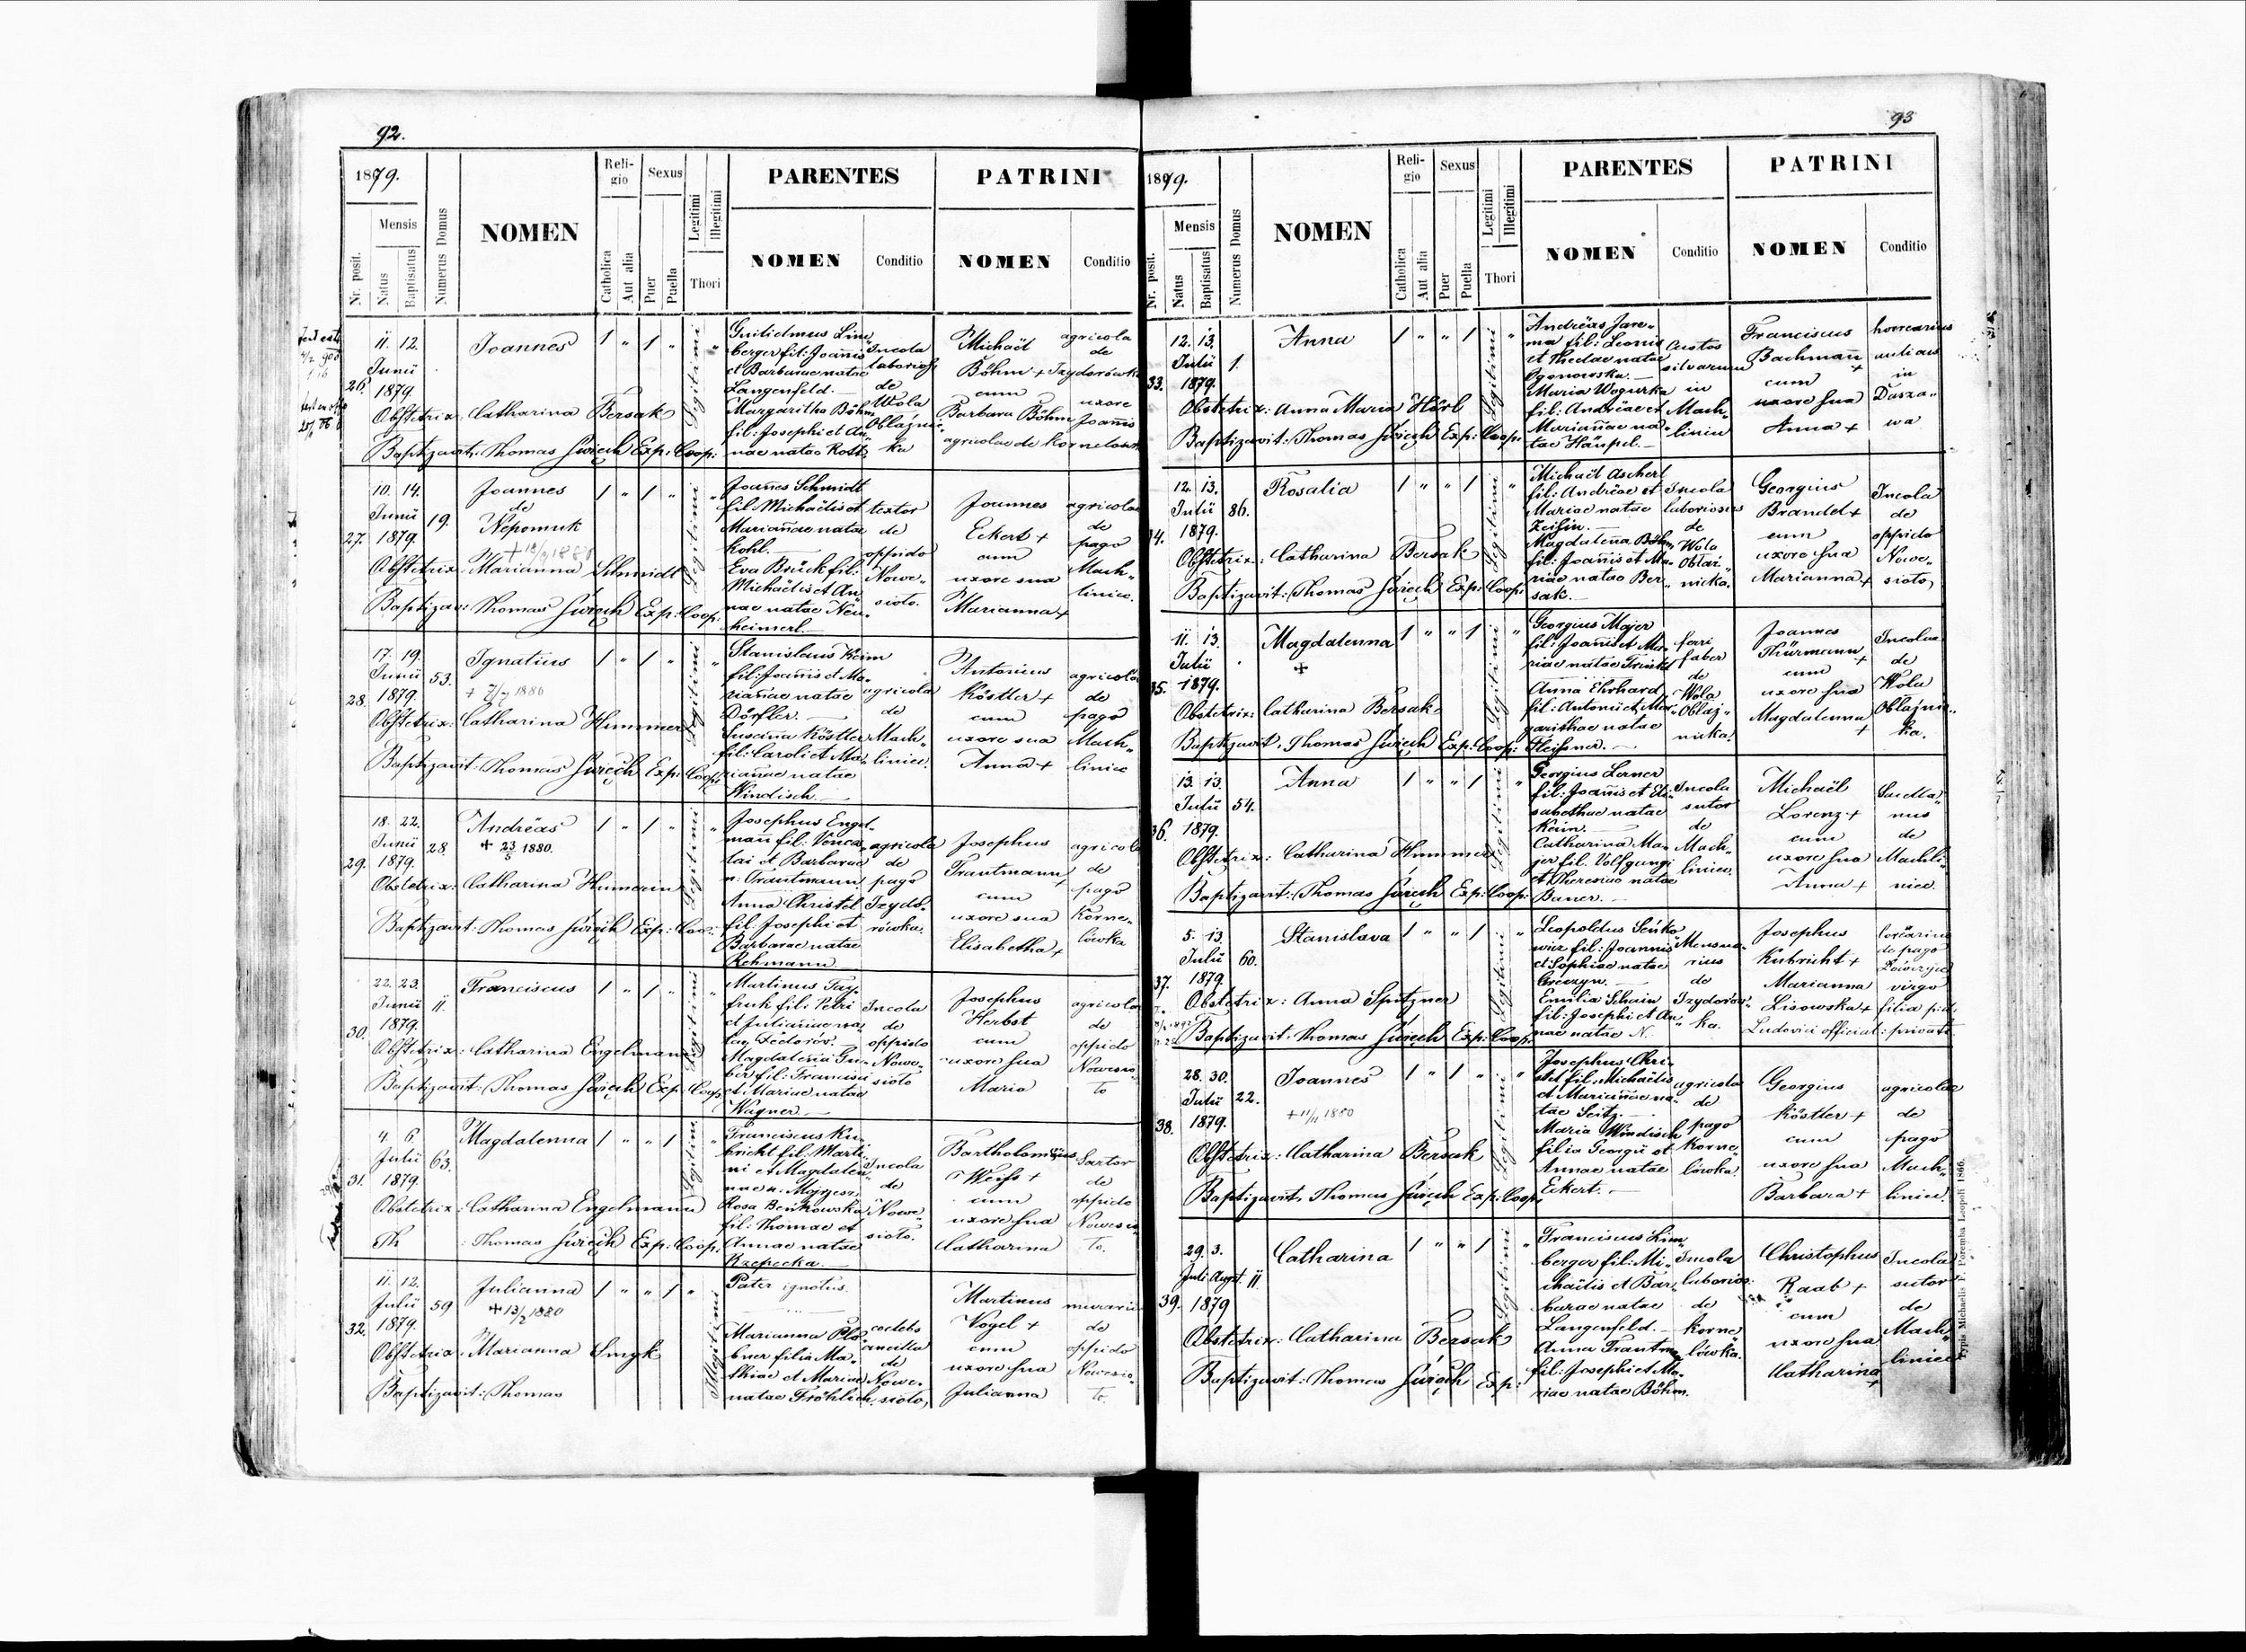 92.
1879.
Reli-
gio
Sexus
Legitimi
Illegitimi
PARENTES
PATRINI
Nr. posit.
Mensis
Natus
Baptisatus
Numerus Domus
NOMEN
Catholica
Aut alia
Puer
Puella
Thori
NOMEN
Conditio
NOMEN
Conditio
26.
11. 12.
Junii
1879.
Joannes
1 " 1 "
Legitimi
Guilielmus Lim-
berger fil: Joannis
et Barbarae natae
Langenfeld.
Margaritha Böhm
fil: Josephi et An-
nae natae Roth
Incola
laborios
de
Wola
Oblaźnic-
ka
Michaël
Böhm +
cum
Barbara Böhm
agricola
de
Izydorówka
uxore
Joannis
agricolae de Kornelowka
Obstetrix: Catharina Bersak
Baptizavit: Thomas Święch Exp: Coop:
27.
10. 14.
Junii
1879.
19.
Joannes
de
Nepomuk
1 " 1 "
Legitimi
Joannes Schmidt
fil: Michaëlis et
Mariannae natae
Kohl.
Eva Brück fil:
Michaëlis et An-
nae natae Neu-
heimerl.
textor
de
oppido
Nowe-
sioło.
Joannes
Eckert +
cum
uxore sua
Marianna +
agricola
de
pago
Mach-
liniec.
Obstetrix: Marianna Schmidt
Baptizav: Thomas Święch Exp: Coop:
28.
17. 19.
Junii
1879.
53.
Ignatius
1 " 1 "
Legitimi
Stanislaus Keim
fil: Joannis et Ma-
riannae natae
Dörfler.
Susanna Köstler
fil: Caroli et Ma-
riannae natae
Windisch.
agricola
de
Mach-
liniec.
Antonius
Köstler +
cum
uxore sua
Anna +
agricola
de
pago
Mach-
liniec
Obstetrix: Catharina Hummer
Baptizavit: Thomas Święch Exp: Coop:
29.
18. 22.
Junii
1879.
28.
Andrëas
+ 23/5 1880.
1 " 1 "
Legitimi
Josephus Engel-
mann fil: Vences-
lai et Barbarae
n: Trautmann
Anna Christel
fil: Josephi et
Barbarae natae
Rehmann.
agricola
de
pago
Izydo-
rówka.
Josephus
Trautmann +
cum
uxore sua
Elisabetha +
agricola
de
pago
Korne-
lówka
Obstetrix: Catharina Humerin
Baptizavit: Thomas Święch Exp: Coo:
30.
22. 23.
Junii
1879.
11.
Franciscus
1 " 1 "
Legitimi
Martinus
fil: Petri
et Juliannae na-
tae Fedorów.
Magdalena Gu-
ber fil: Francisci
et Mariae natae
Wagner.
Incola
de
oppido
Nowe-
sioło
Josephus
Herbst
cum
uxore sua
Maria
agricola
de
oppido
Nowesio-
ło
Obstetrix: Catharina Engelmann
Baptizavit: Thomas Święch Exp: Coop
31.
4. 6.
Julii
1879.
63.
Magdalenna
1 " " 1
Legitimi
Franciscus Ku-
bricht fil: Marti-
ni et Magdalen-
nae n: Mojzesz.
Rosa Beńkowska
fil: Thomae et
Annae natae
Rzepecka.
Incola
de
Nowe-
sioło.
Bartholomäus
Weiss +
cum
uxore sua
Catharina
Sartor
de
oppido
Nowesio-
ło.
Obstetrix: Catharina Engelmann
Th : Thomas Święch Exp: Coop:
32.
11. 12.
Julii
1879.
59
Julianna
+ 13/2 1880
1 " " 1 "
Illegitimi
Pater ignotus.
Marianna Plö-
bner filia Ma-
thiae et Mariae
natae Fröhlich
coelebs
ancilla
de
Nowe-
sioło,
Martinus
Vogel +
cum
uxore sua
Julianna
murarius
de
oppido
Nowesio-
ło.
Obstetrix: Marianna Smyk
Baptizavit: Thomas
93
1879.
Reli-
gio
Sexus
Legitimi
Illegitimi
PARENTES
PATRINI
Nr. posit.
Mensis
Natus
Baptisatus
Numerus Domus
NOMEN
Catholica
Aut alia
Puer
Puella
Thori
NOMEN
Conditio
NOMEN
Conditio
33.
12. 13.
Julii
1879.
1.
Anna
1 " " 1 "
Legitimi
Andrëas Jare-
ma fil: Leonis
et Theclae natae
Ogonowska.
Maria Wogurka
fil: Andrëae et
Mariannae na-
tae Häupel.
Custos
silvarum
in
Mach-
liniec
Franciscus
Bachmann +
cum
uxore sua
Anna +
horrearius
aulicus
in
Dasza-
wa
Obstetrix: Anna Maria Hörl
Baptizavit: Thomas Święch Exp: Coop:
34.
12. 13.
Julii
1879.
86.
Rosalia
1 " " 1 "
Legitimi
Michaël Ascherl
fil: Andrëae et
Mariae natae
Zeisin.
Magdalena Böhm
fil: Joannis et Ma-
riae natae Ber-
sak.
Incola
laboriosus
de
Wola
Obłaź-
nicka.
Georgius
Brandel +
cum
uxore sua
Marianna +
Incola
de
oppido
Nowe-
sioło,
Obstetrix: Catharina Bersak
Baptizavit: Thomas Święch Exp: Coop:
35.
11. 13
Julii
1879.
Magdalenna
+
1 " " 1 "
Legitimi
Georgius Majer
fil: Joannis et Ma-
riae natae Trinkl
Anna Ehrhard
fil: Antonii et Mar-
garithae natae
Fleissner.
ferri
faber
de
Wola
Oblaź-
nicka.
Joannes
Thürmann +
cum
uxore sua
Magdalenna
+
Incolae
de
Wola
Oblaźnic-
ka.
Obstetrix: Catharina Bersak
Baptizavit: Thomas Święch Exp: Coop:
36.
13. 13.
Julii
1879.
54.
Anna
1 " " 1 "
Legitimi
Georgius Lerner
fil: Joannis et Eli-
sabethae natae
Keim.
Catharina Ma-
jer fil: Volfgangi
et Theresiae natae
Bauer.
Incola
sutor
de
Mach-
liniec.
Michaël
Lorenz +
cum
uxore sua
Anna +
de
Machli-
niec.
Obstetrix: Catharina Hummer
Baptizavit: Thomas Święch Exp: Coop:
37.
5. 13.
Julii
1879.
60.
Stanislava
1 " " 1 "
Legitimi
Leopoldus Seńko-
wicz fil: Joannis
et Sophiae natae
Emilia Schain
fil: Josephi et An-
nae natae N.
Mensua-
rius
de
Izydorów-
ka.
Josephus
Kubricht +
Marianna
Lisowska +
de pago
virgo
filia
Ludovici official: privati
Obstetrix: Anna Spitzner
Baptizavit: Thomas Święch Exp: Coop:
38.
28. 30.
Julii
1879.
22.
Joannes
+ 11/11 1880
1 " 1 " "
Legitimi
Josephus Chri-
stel fil: Michaëlis
et Mariannae na-
tae Seitz.
Maria Windisch
filia Georgii et
Annae natae
Eckert.
agricola
de
pago
Korne-
lówka
Georgius
Köstler +
cum
uxore sua
Barbara +
agricolae
de
pago
Mach-
liniec.
Obstetrix: Catharina Bersak
Baptizavit: Thomas Święch Exp: Coop:
39.
29. 3.
Juli Augt.
1879
11
Catharina
1 " " 1 "
Legitimi
Franciscus Lim-
berger fil: Mi-
chaëlis et Bar-
barae natae
Langenfeld.
Anna Trautm
fil: Josephi et Ma-
riae natae Böhm.
Incola
laborios:
de
Korne-
lówka.
Christophus
Raab +
cum
uxore sua
Catharina
+
Incola
sutor
de
Mach-
liniec
Obstetrix: Catharina Bersak
Baptizavit: Thomas Święch Exp:
Typis Michaelis F. Poremba Leopoli 1866.